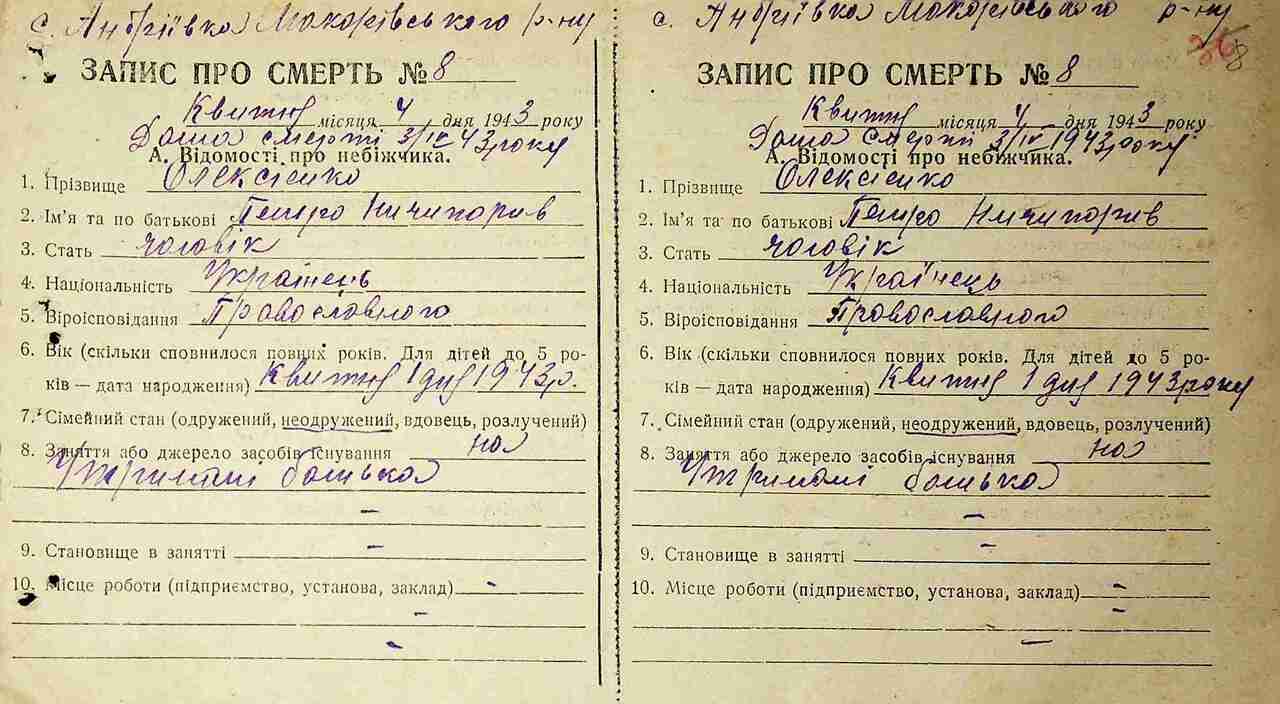 с. Андріївка Макарівського р-ну
ЗАПИС ПРО СМЕРТЬ № 8
Квітня місяця 4 дня 1943 року
Дата смерті 3/IV 43 року
А. Відомості про небіжчика.
1. Прізвище Олексієнко
2. Ім'я та по батькові Петро Ничипорів
3. Стать чоловік
4. Національність Українець
5. Віроісповідання Православного
6. Вік (скільки сповнилося повних років. Для дітей до 5 ро-
ків — дата народження) Квітня 1 дня 1943 р.
7. Сімейний стан (одружений, неодружений, вдовець, розлучений)
8. Заняття або джерело засобів існування на
Утримані батька
–
9. Становище в занятті –
10. Місце роботи (підприємство, установа, заклад) -
–
–
с. Андріївка Макарівського р-ну
8
ЗАПИС ПРО СМЕРТЬ № 8
Квітня місяця 4 дня 1943 року
Дата смерті 3/IV 1943 року
А. Відомості про небіжчика.
1. Прізвище Олексієнко
2. Ім'я та по батькові Петро Ничипорів
3. Стать чоловік
4. Національність Українець
5. Віроісповідання Православного
6. Вік (скільки сповнилося повних років. Для дітей до 5 ро-
ків — дата народження) Квітня 1 дня 1943 року
7. Сімейний стан (одружений, неодружений, вдовець, розлучений)
8. Заняття або джерело засобів існування на
Утримані батька
–
9. Становище в занятті –
10. Місце роботи (підприємство, установа, заклад) –
–
–